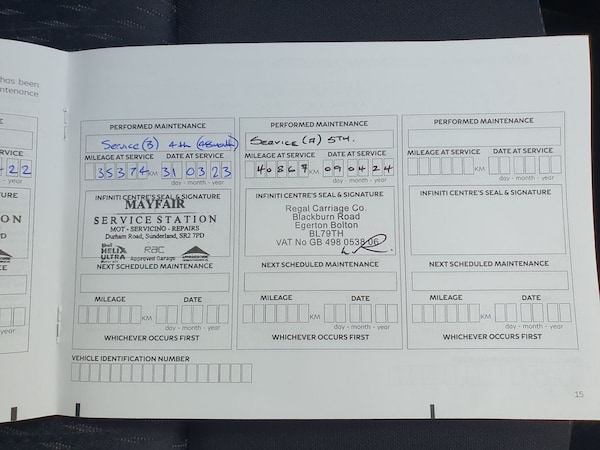 has been
ntenance
E
SERVICE
4 2 2
- year
URE
ON
CE
- year
PERFORMED MAINTENANCE
Service (B) 4th (48month)
MILEAGE AT SERVICE DATE AT SERVICE
35374 KM 31 03 23
day - month - year
INFINITI CENTRE'S SEAL & SIGNATURE
MAYFAIR
SERVICE STATION
MOT - SERVICING - REPAIRS
Durham Road, Sunderland, SR2 7PD
Shell
HELIX
ULTRA
RAC
Approved Garage
NEXT SCHEDULED MAINTENANCE
MILEAGE DATE
KM
day - month - year
WHICHEVER OCCURS FIRST
PERFORMED MAINTENANCE
Service (A) 5TH.
MILEAGE AT SERVICE DATE AT SERVICE
40869 KM 09 04 24
day - month - year
INFINITI CENTRE'S SEAL & SIGNATURE
Regal Carriage Co.
Blackburn Road
Egerton Bolton
BL79TH
VAT No GB 498 0538 06
NEXT SCHEDULED MAINTENANCE
MILEAGE DATE
KM
day - month - year
WHICHEVER OCCURS FIRST
PERFORMED MAINTENANCE
MILEAGE AT SERVICE DATE AT SERVICE
KM
day - month - year
INFINITI CENTRE'S SEAL & SIGNATURE
NEXT SCHEDULED MAINTENANCE
MILEAGE DATE
KM
day - month - year
WHICHEVER OCCURS FIRST
VEHICLE IDENTIFICATION NUMBER
15